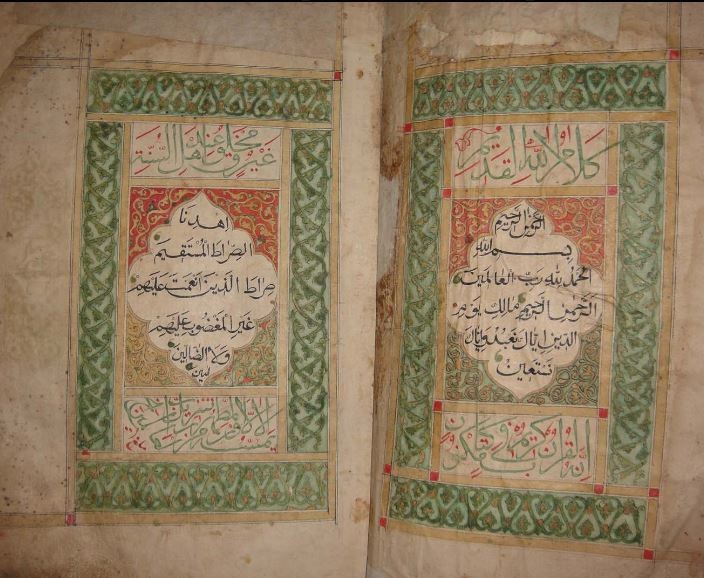 كلام الله القديم
الرحمن الرحيم
بسم الله
الحمد لله رب العالمين
الرحمن الرحيم مالك يوم
الدين اياك نعبد واياك
نستعين
انه لقران كريم في كتاب مكنون
غير مخلوق عند اهل السنة
اهدنا
الصراط المستقيم
صراط الذين انعمت عليهم
غير المغضوب عليهم
ولا الضالين
لا يمسه الا المطهرون تنزيل من رب